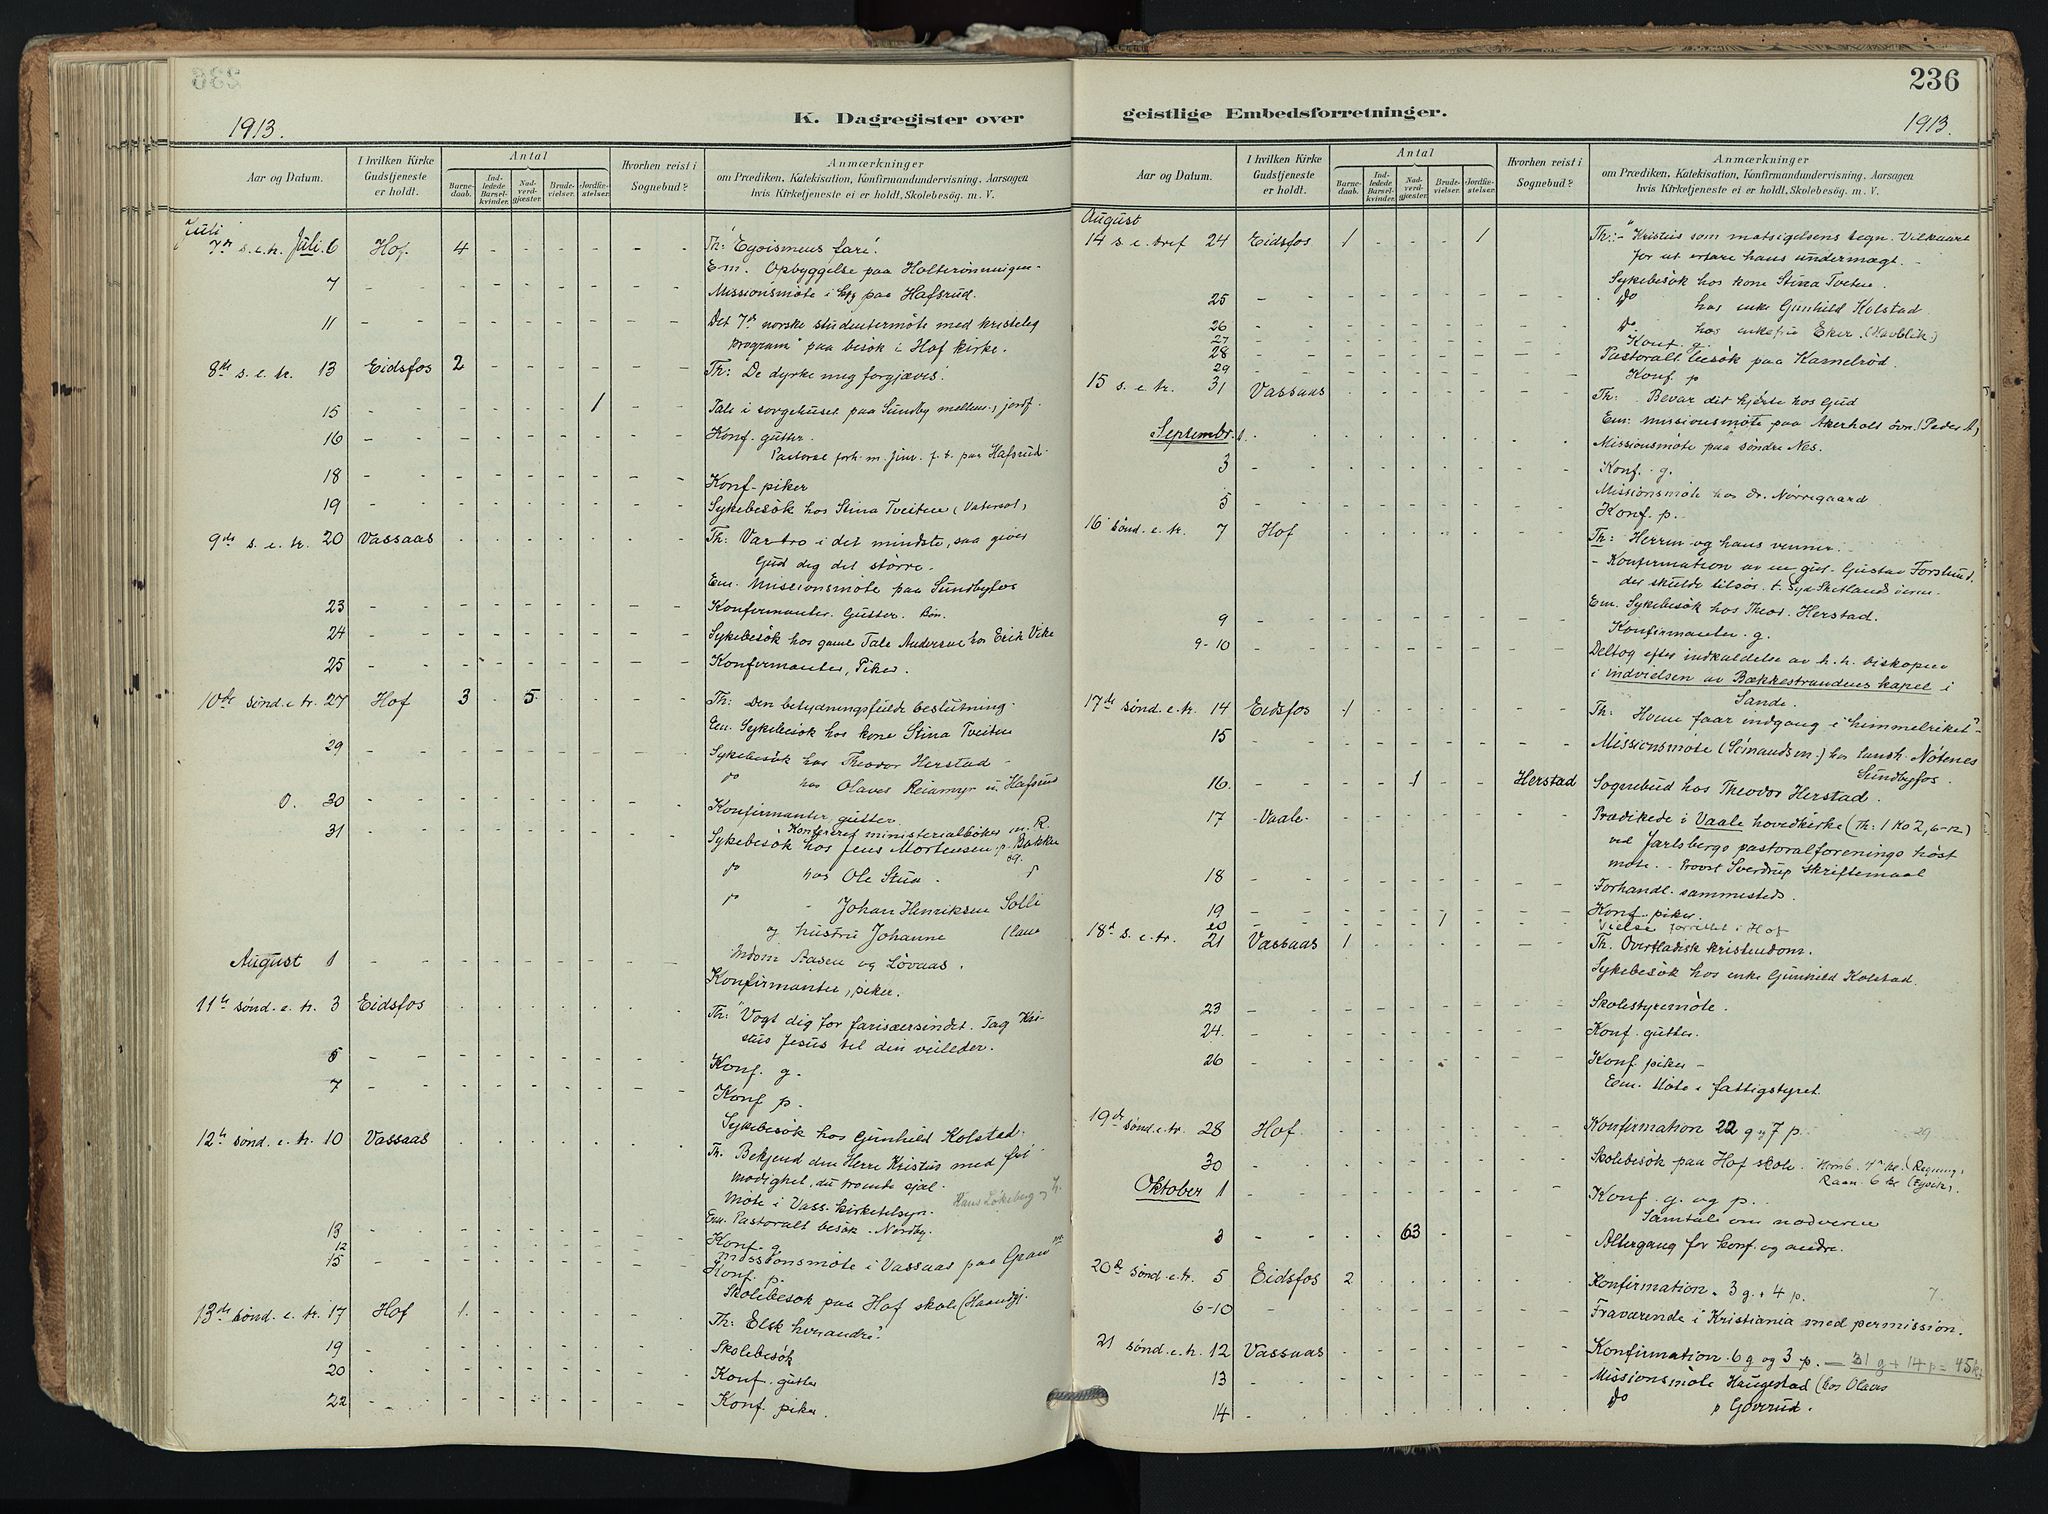 236
1913.
K. Dagregister over
geistlige Embedsforretninger.
1913.
Aar og Datum.
I hvilken Kirke Gudstjeneste er holdt.
Antal
Barne-daab.
Ind-ledede Barsel-kvinder.
Nad-verd-gjæster.
Brude-vielser.
Jordfæ-stelser.
Hvorhen reist i Sognebud?
Anmærkninger
om Prædiken, Katekisation, Konfirmandundervisning, Aarsagen
hvis Kirketjeneste ei er holdt, Skolebesøg. m. V.
Juli
7de s. e. tr. Juli 6 Hof. 4 - - - - - - Th: "Egoismens fare".
Em. Opbyggelse paa Holterønningen
7 - - - - - - - Missionsmøte i paa Hafsrud.
11 - - - - - - - Det 7de norske studentermøte med kristelig
program" paa besøk i Hof kirke.
8de s. e. tr. 13 Eidsfos 2 - - - - - Th: De dyrke mig forgjæves.
15 - - - - - 1 - - Tale i sorgehuset paa Sundby mellem, jordf.
16 - - - - - - - Konf. gutter.
Pastoral forh. m. f. t. paa Hafsrud.
18 - - - - - - - Konf. piker
19 - - - - - - - Sykebesøk hos Stina Tveiten
9de s. e. tr. 20 Vassaas - - - - - - Th: Var tro i det mindste, saa giver
Gud dig det større.
Em. Missionsmøte paa Sundbyfos
23 - - - - - - - Konfirmanter. Gutter. Bøn.
24 - - - - - - - Sykebesøk hos gamle Tale Andersen hos Erik Vike
25 - - - - - - - Konfirmanter, Piker.
10de sønd. e. tr. 27 Hof 3 - 5 - - - Th: Den betydningsfulde beslutning.
Em. Sykebesøk hos kone Stina Tveiten
29 - - - - - - - Sykebesøk hos Theodor Herstad -
do hos Olaves Reiamyr u. Hafsrud
30 - - - - - - - Konfirmanter, gutter.
Konfereref ministerialbøker m. R.
31 - - - - - - - Sykebesøk hos Jens Mortensen, p. Bakke
do hos Ole Stua.
do - Johan Henriksen Solli
og hustru Johanne
Indom Aasen og Løvaas.
August 1 - - - - - - - Konfirmanter, piker.
11te sønd. e. tr. 3 Eidsfos - - - - - - Th: "Vogt dig for farisæersindet. Tag Kri-
stus Jesus til din veileder.
5 - - - - - - - Konf. g.
7 - - - - - - - Konf p.
Sykebesøk hos Gunhild Kolstad.
12te sønd. e. tr. 10 Vassaas - - - - - - Th. Bekjend den Herre Kristus med fri-
modighet, du troende sjæl.
Møte i Vass. kirketilsyn. Hans Løkeberg
Em. Pastoralt besøk - Nordby.
13 - - - - - - - Konf. g
12 - - - - - - - Missionsmøte i Vassaas paa Gran
15 - - - - - - - Konf. p.
Skolebesøk paa Hof skole (Haandgj.
13de sønd. e. tr. 17 Hof 1. - - - - - Th: Elsk hverandre".
19 - - - - - - - Skolebesøk
20 - - - - - - - Konf. gutter
22 - - - - - - - Konf. piker.
Aar og Datum.
I hvilken Kirke Gudstjeneste er holdt.
Antal
Barne-daab.
Ind-ledede Barsel-kvinder.
Nad-verd-gjæster.
Brude-vielser.
Jordfæ-stelser.
Hvorhen reist i Sognebud?
Anmærkninger
om Prædiken, Katekisation, Konfirmandundervisning, Aarsagen
hvis Kirketjeneste ei er holdt, Skolebesøg. m. V.
August
14 s. e. tref 24 Eidsfos 1 - - - 1 - Th: - "Kristus som motsigelsens tegn. Vilkaaret
for at erfare hans undermagt. -
Sykebesøk hos kone Stina Tveten.
25 - - - - - - - Do hos enke Gunhild Kolstad
26 - - - - - - - Do hos enkefru Eker (Havblik)
27 - - - - - - - Konf. g.
28 - - - - - - - Pastoralt besøk paa Kamelrød.
29 - - - - - - - Konf. p
15 s. e. tr. 31 Vassaas - - - - - - Th: Bevar dit hjerte hos Gud
Em: Missionsmøte paa Akerholt øvr. (Peder A)
Septembr. 1 - - - - - - - Missionsmøte paa søndre Nes.
3 - - - - - - - Konf. g.
Missionsmøte hos dr. Nørregaard
5 - - - - - - - Konf. p.
16 sønd. e. tr. 7 Hof - - - - - - Th: Herren og hans venner.
- Konfirmation av en gut. Gustav Forslund,
der skulde tilsjøs t. Syd-Shetlands øerne.
Em. Sykebesøk hos Theod. Herstad.
9 - - - - - - - Konfirmanter. g.
9-10 - - - - - - - Deltog efter indkaldelse av h. h. biskopen
i indvielsen av Bækkestrandens kapel i
Sande.
17de sønd. e. tr. 14 Eidsfos 1 - - - - - Th: Hvem faar indgang i "himmelriket"-
15 - - - - - - - Missionsmøte (Sømandsm.) hos landh. Nøtenes
Sundbyfos.
16. - - - 1 - - Herstad Sognebud hos Theodor Herstad.
17 - Vaale - - - - - - Prædikede i Vaale hovedkirke (Th: 1 Ko 2, 6-12)
ved Jarlsbergs pastoralforenings høst
møte. - Provst Sverdrup skriftemaal
18 - - - - - - - Forhandl. sammesteds.
19 - - - - - - - Konf. piker.
20 - - - - 1 - - Vielse forrettet i Hof
18d s. e. tr. 21 Vassaas 1 - - - - - Th. Overfladisk kristendom.
Sykebesøk hos enke Gunhild Kolstad.
23 - - - - - - - Skolestyremøte.
24. - - - - - - - Konf. gutter.
26 - - - - - - - Konf. piker -
Em. Møte i fattigstyret.
19de sønd. e. tr. 28 Hof. - - - - - - Konfirmation 22 g og 7 p. 29
30 - - - - - - - Skolebesøk paa Hof skole. Komb. 4de kl. (Regning,
Raan. 6 kl (Fysik).
Oktober 1 - - - - - - - Konf. g. og p.
Samtale om nadveren
3 - - - 63 - - - Altergang for konf. og andre.
20de sønd. e. tr. 5 Eidsfos 2 - - - - - Konfirmation. 3 g. + 4 p. 7.
6-10 - - - - - - - Fraværende i Kristiania med permission.
21 sønd. e. tr. 12 Vassaas - - - - - - Konfirmation 6 g og 3 p. = 31 g + 14 p = 45
13 - - - - - - - Missionsmøte Haugestad (hos Olaves
14 - - - - - - - Do p Goverud.